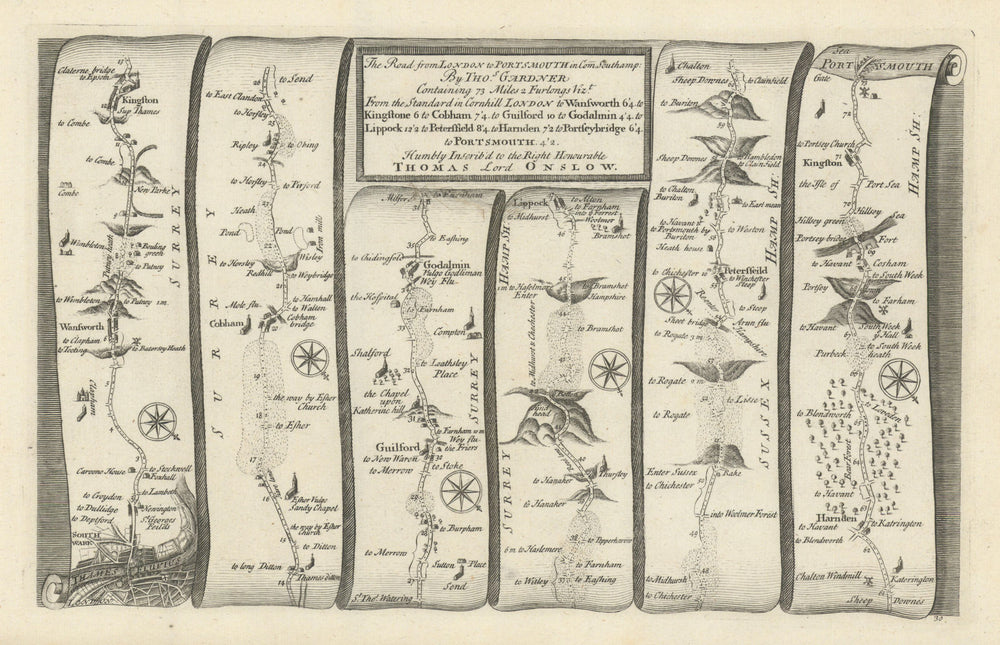 The Road from LONDON to PORTSMOUTH in Com. Southamp:
By THO.s GARDNER
Containing 73 Miles 2 Furlongs Viz.t
From the Standard in Cornhill LONDON to Wansworth 6'4. to
Kingstone 6 to Cobham 7'4. to Guilford 10 to Godalmin 4'4. to
Lippock 12'2 to Petersfield 8'4. to Harnden 7'2 to Portseybridge 6'4.
to PORTSMOUTH 4'2.
Humbly Inscrib'd to the Right Honourable
THOMAS Lord ONSLOW.
Claterne bridge
to Epsom
Kingston
Sup Thames
to Combe
to Combe
New Parke
Combe
SURREY
Wimbleton
Bouling
green
to Putney
Putney heath
to Wimbleton
to Putney 1 m
Wansworth
to Clapham
to Tooting
to Batersey Heath
Clapham
Caroone House
to Stockwell
Foxhall
to Croydon
to Lambeth
to Dullidge
Newington
to Deptford
St Georges
Feilds
SOUTH
WARK
THAMES FLUVIUS
LONDON
to Send
to East Clandon
to Horsley
Ripley
to Obing
to Horsley
to Purford
Heath
Pond
Pond
Wisley
to Horsley
Redhill
to Weybridge
Mole flu.
to Harnhall
to Walton
Cobham
Cobham
bridge
SURREY
the way by Esher
Church
to Esher
Esher Vulgo
Sandy Chapel
the way by Esher
Church
to Ditton
to long Ditton
Thames ditton
Milford
to Farnham
to Eashing
to Chidingfold
Godalmin
Vulgo Godliman
Wey Flu
the Hospital
to Farnham
Compton
Shalford
to Loathsley
Place
the Chapel
upon
Katherine hill
SURREY
to Farnham 10 m
Wey flu
the Friers
Guilford
to New Warn
to Merrow
to Stoke
to Burpham
to Merrow
Sutton Place
Send
St. Tho.s Watering
Lippock
to Alton
to Farnham
into ye Forrest
Woolmer
to Midhurst
Bramshot
HAMP SH:
to Haselmere
Enter
to Bramshot
Hampshire
to Bramshot
to Midhurst & Chichester
Hind
head
Thursley
to Hanaker
to Hanaker
SURREY
6 m to Haslemere
to Farnham
to Witley
to Eashing
Chalton
Sheep Downes
to Clainfield
to Buriton
Sheep Downes
to Hambledon
to Clainfield
to Chalton
Buriton
to East mean
to Havant
to Portsmouth by
Buriton
to Weston
Heath house
HAMP SH:
to Chichester
Petersfeild
to Winchester
Steep
to Steep
Sheet bridge
Arun flu
Hampshire
to Rogate 3 m
to Rogate 2 m
to Lisse
to Rogate
SUSSEX
Enter Sussex
to Chichester
Rake
into Woolmer Forist
to Midhurst
to Chichester
Sea
PORTSMOUTH
Gate
to Portsey Church
Kingston
the Isle of
Port Sea
HAMP SH:
Hillsey
Hillsey green
Sea
Portsey bridge
Fort
to Havant
Cosham
to South Week
Portsey
to Farham
to Havant
South Week
Hall
Purbeck
to South Week
heath
to Blendworth
to Lowden
to Havant
Harnden
to Havant
to Katrington
to Blendworth
Chalton Windmill
Katerington
Sheep Downes
30